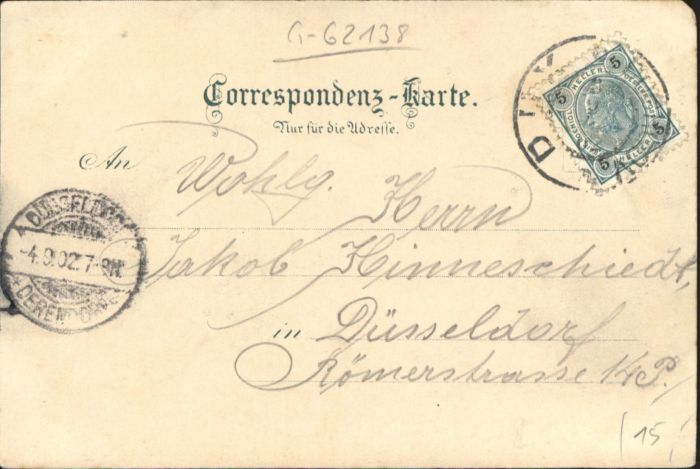 G-62138
Correspondenz-Karte.
Nur für die Adresse.
An Wohlg. Herrn
Jakob Hinneschiedt,
in Düsseldorf
Römerstrasse 14 P.
DÜSSELDORF
-4.9.02.7-8N.
DERENDORF
5 5 5 5
(15,